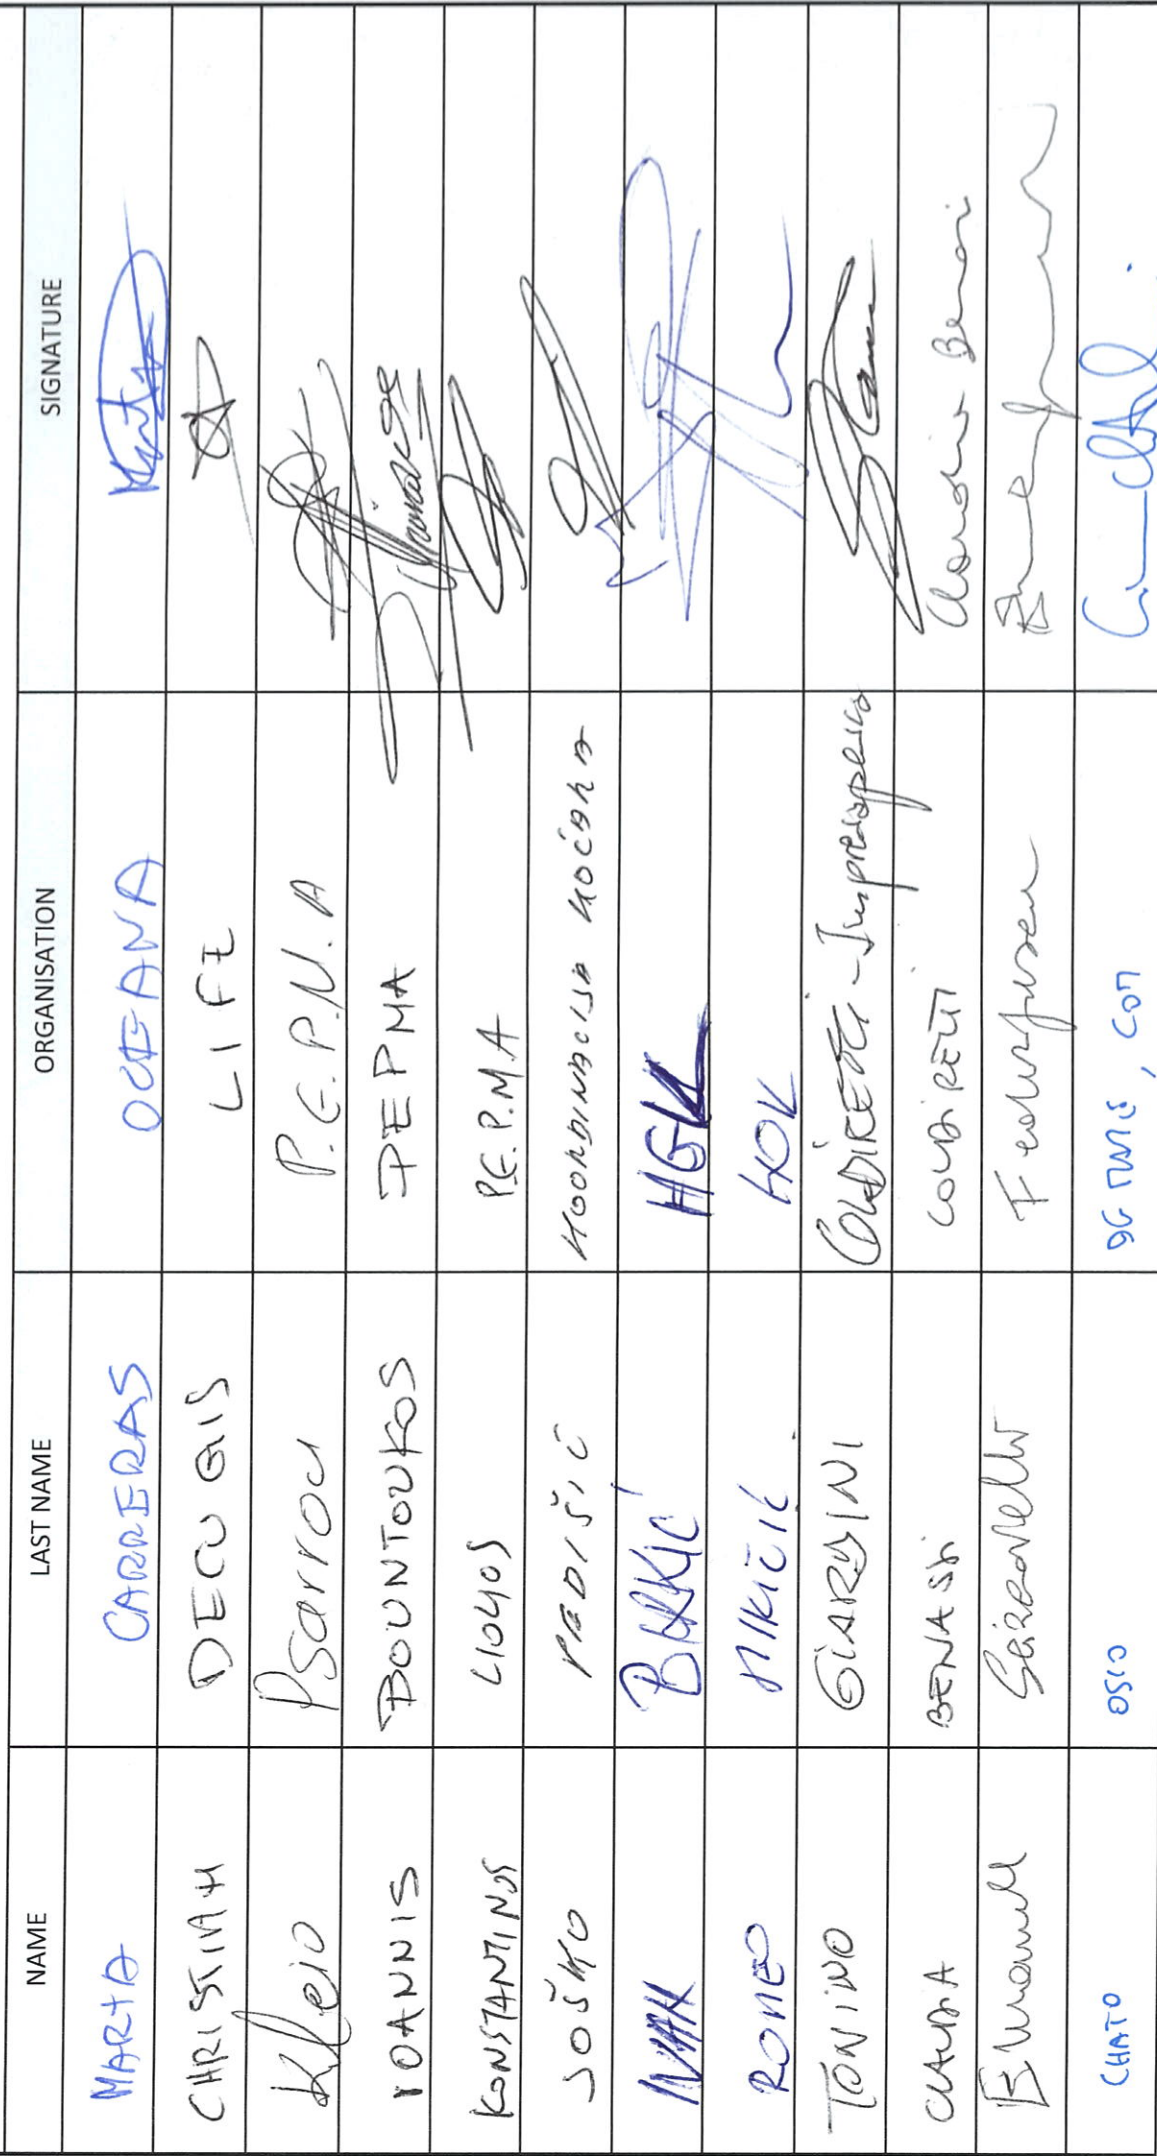 NAME LAST NAME ORGANISATION SIGNATURE
MARTA CARRERAS OCEANA
CHRISTIAN DECUGIS LIFE
Kleio Psarrou P.E.P.N.A
IOANNIS BOUNTOUKOS PEPMA
KONSTANTINOS LIOLIOS P.E.P.M.A
JOŠKO PEDIŠIĆ KOORDINACIJA KOĆARA
IVAN BARKIĆ HGK
ROMEO MIKIČIĆ HOK
TONINO GIARDINI COLDIRETTI-Impresapesca
CLAUDIA BENASSI COLDIRETTI Claudia Benassi
Emanuele Sciacovelli Federpesca
CHATO OSIO DG MARE, COM